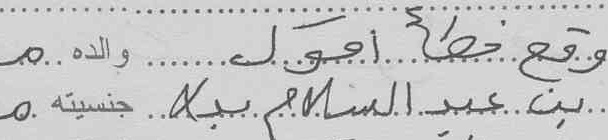 وقع خطأ أقول والده م
بن عبد السلام بدلا جنسيته م